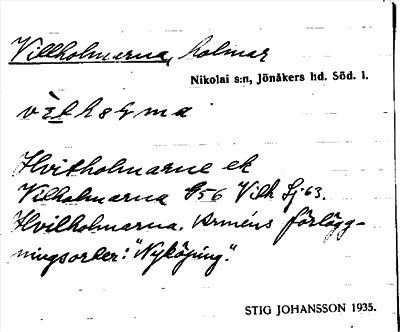 Villholmarna, holmar
Nikolai s:n, Jönåkers hd. Söd. l.
Hvitholmarne ek
Vilholmarna G56 Vilh Lj 63.
Hvilholmarna. Arméns förlägg-
ningsorter: "Nyköping".
STIG JOHANSSON 1935.